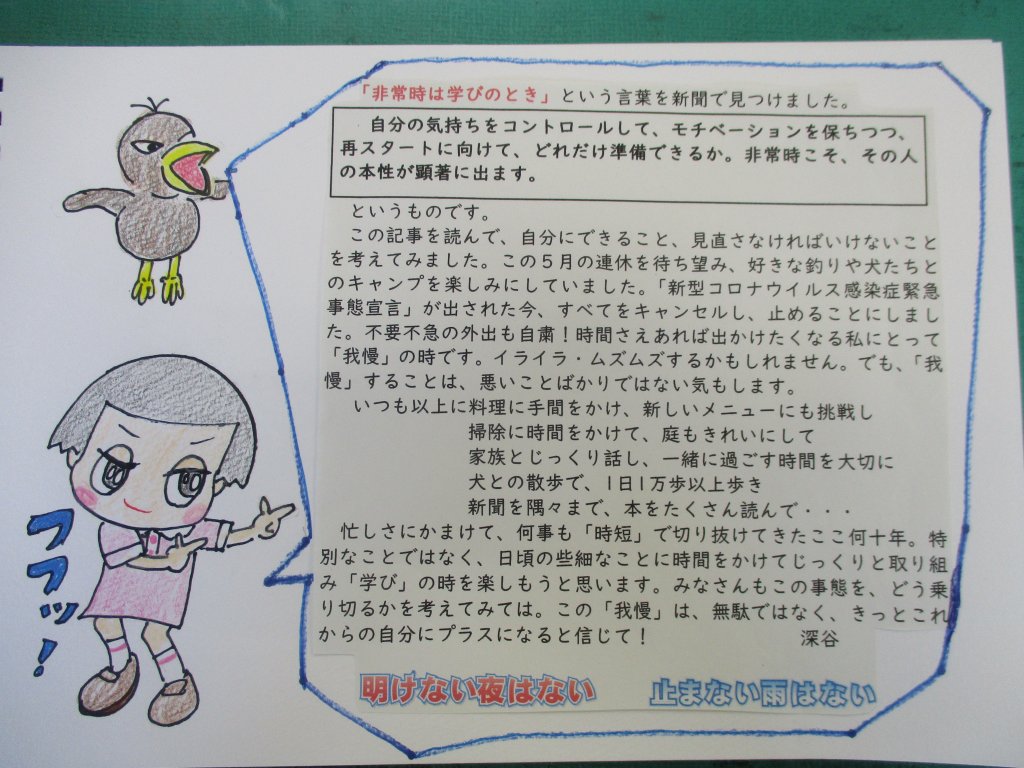 「非常時は学びのとき」という言葉を新聞で見つけました。
自分の気持ちをコントロールして、モチベーションを保ちつつ、
再スタートに向けて、どれだけ準備できるか。非常時こそ、その人
の本性が顕著に出ます。
というものです。
この記事を読んで、自分にできること、見直さなければいけないこと
を考えてみました。この5月の連休を待ち望み、好きな釣りや犬たちと
のキャンプを楽しみにしていました。「新型コロナウイルス感染症緊急
事態宣言」が出された今、すべてをキャンセルし、止めることにしまし
た。不要不急の外出も自粛！時間さえあれば出かけたくなる私にとって
「我慢」の時です。イライラ・ムズムズするかもしれません。でも、「我
慢」することは、悪いことばかりではない気もします。
いつも以上に料理に手間をかけ、新しいメニューにも挑戦し
掃除に時間をかけて、庭もきれいにして
家族とじっくり話し、一緒に過ごす時間を大切に
犬との散歩で、1日1万歩以上歩き
新聞を隅々まで、本をたくさん読んで・・・
忙しさにかまけて、何事も「時短」で切り抜けてきたここ何十年。特
別なことではなく、日頃の些細なことに時間をかけてじっくりと取り組
み「学び」の時を楽しもうと思います。みなさんもこの事態を、どう乗
り切るかを考えてみては。この「我慢」は、無駄ではなく、きっとこれ
からの自分にプラスになると信じて！ 深谷
明けない夜はない 止まない雨はない
フフッ！